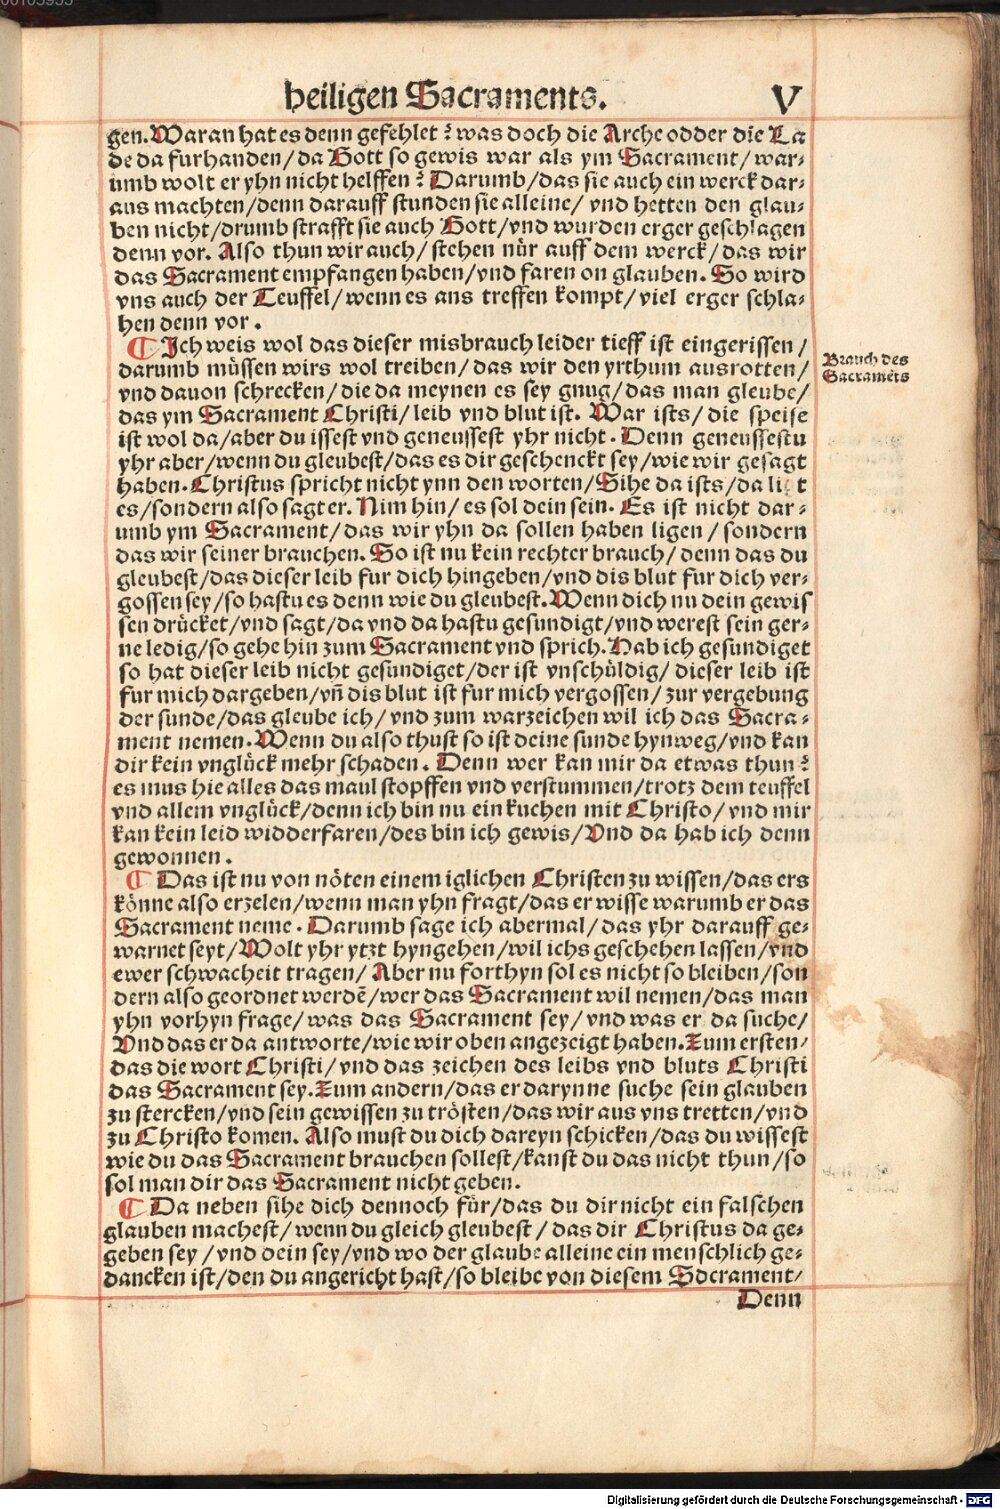 00105955
heiligen Sacraments. V
gen. Waran hat es denn gefehlet? was doch die Arche odder die La
de da furhanden/da Gott so gewis war als ym Sacrament/war-
umb wolt er yhn nicht helffen? Darumb/das sie auch ein werck dar-
aus machten/denn darauff stunden sie alleine/ vnd hetten den glau-
ben nicht/drumb strafft sie auch Gott/vnd wurden erger geschlagen
denn vor. Also thun wir auch/stehen nůr auff dem werck/das wir
das Sacrament empfangen haben/vnd faren on glauben. So wird
vns auch der Teuffel/wenn es ans treffen kompt/viel erger schla-
hen denn vor.
¶ Ich weis wol das dieser misbrauch leider tieff ist eingerissen/
darumb müssen wirs wol treiben/das wir den yrthum ausrotten/
vnd dauon schrecken/die da meynen es sey gnug/das man gleube/
das ym Sacrament Christi/leib vnd blut ist. War ists/die speise
ist wol da/aber du issest vnd geneussest yhr nicht. Denn geneussestu
yhr aber/wenn du gleubest/das es dir geschenckt sey/wie wir gesagt
haben. Christus spricht nicht ynn den worten/Sihe da ists/da ligt
es/sondern also sagt er. Nim hin/es sol dein sein. Es ist nicht dar-
umb ym Sacrament/das wir yhn da sollen haben ligen/sondern
das wir seiner brauchen. So ist nu kein rechter brauch/denn das du
gleubest/das dieser leib fur dich hingeben/vnd dis blut fur dich ver-
gossen sey/so hastu es denn wie du gleubest. Wenn dich nu dein gewis
sen drücket/vnd sagt/da vnd da hastu gesundigt/vnd werest sein ger-
ne ledig/so gehe hin zum Sacrament vnd sprich. Hab ich gesundiget
so hat dieser leib nicht gesundiget/der ist vnschüldig/dieser leib ist
fur mich dargeben/vñ dis blut ist fur mich vergossen/zur vergebung
der sunde/das gleube ich/vnd zum warzeichen wil ich das Sacra-
ment nemen. Wenn du also thust so ist deine sunde hynweg/vnd kan
dir kein vnglück mehr schaden. Denn wer kan mir da etwas thun?
es mus hie alles das maul stopffen vnd verstummen/trotz dem teuffel
vnd allem vnglück/denn ich bin nu ein kuchen mit Christo/vnd mir
kan kein leid widderfaren/des bin ich gewis/Vnd da hab ich denn
gewonnen.
¶ Das ist nu von nöten einem iglichen Christen zu wissen/das ers
könne also erzelen/wenn man yhn fragt/das er wisse warumb er das
Sacrament neme. Darumb sage ich abermal/das yhr darauff ge-
warnet seyt/Wolt yhr ytzt hyngehen/wil ichs geschehen lassen/vnd
ewer schwacheit tragen/Aber nu forthyn sol es nicht so bleiben/son
dern also geordnet werdē/wer das Sacrament wil nemen/das man
yhn vorhyn frage/was das Sacrament sey/vnd was er da suche/
Vnd das er da antworte/wie wir oben angezeigt haben. Zum ersten/
das die wort Christi/vnd das zeichen des leibs vnd bluts Christi
das Sacrament sey. Zum andern/das er darynne suche sein glauben
zu stercken/vnd sein gewissen zu trösten/das wir aus vns tretten/vnd
zu Christo komen. Also must du dich dareyn schicken/das du wissest
wie du das Sacrament brauchen sollest/kanst du das nicht thun/so
sol man dir das Sacrament nicht geben.
¶ Da neben sihe dich dennoch für/das du dir nicht ein falschen
glauben machest/wenn du gleich gleubest/das dir Christus da ge-
geben sey/vnd dein sey/vnd wo der glaube alleine ein menschlich ge-
dancken ist/den du angericht hast/so bleibe von diesem Sacrament/
Denn
Brauch des
Sacramēts
Digitalisierung gefördert durch die Deutsche Forschungsgemeinschaft - DFG